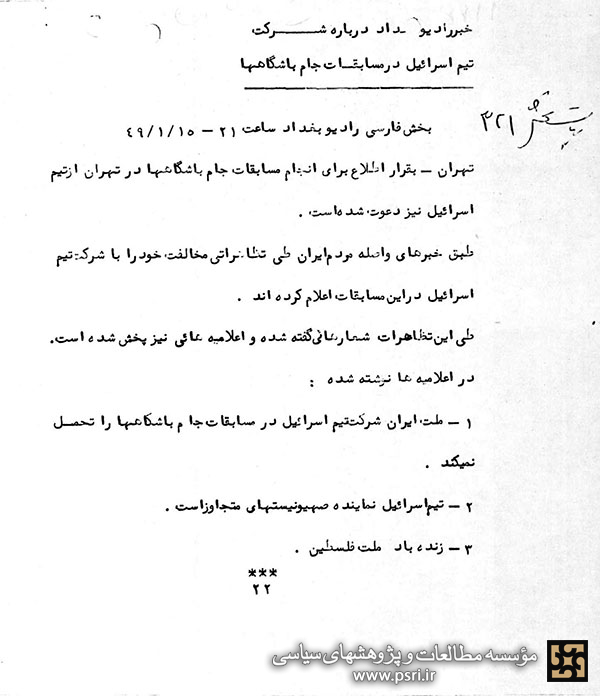 خبر رادیو بغداد درباره شرکت
تیم اسرائیل در مسابقات جام باشگاهها
بخش فارسی رادیو بغداد ساعت ۲۱ - ۴۹/۱/۱۵
۳۲۱
تهران - بقرار اطلاع برای انجام مسابقات جام باشگاهها در تهران از تیم
اسرائیل نیز دعوت شده است .
طبق خبرهای واصله مردم ایران طی تظاهراتی مخالفت خود را با شرکت تیم
اسرائیل در این مسابقات اعلام کرده اند .
طی این تظاهرات شعارهائی گفته شده و اعلامیه هائی نیز پخش شده است.
در اعلامیه ها نوشته شده :
۱ - ملت ایران شرکت تیم اسرائیل در مسابقات جام باشگاهها را تحمل
نمیکند .
۲ - تیم اسرائیل نماینده صهیونیستهای متجاوز است .
۳ - زنده باد ملت فلسطین .
***
۲۲
مؤسسه مطالعات و پژوهشهای سیاسی
www.psri.ir